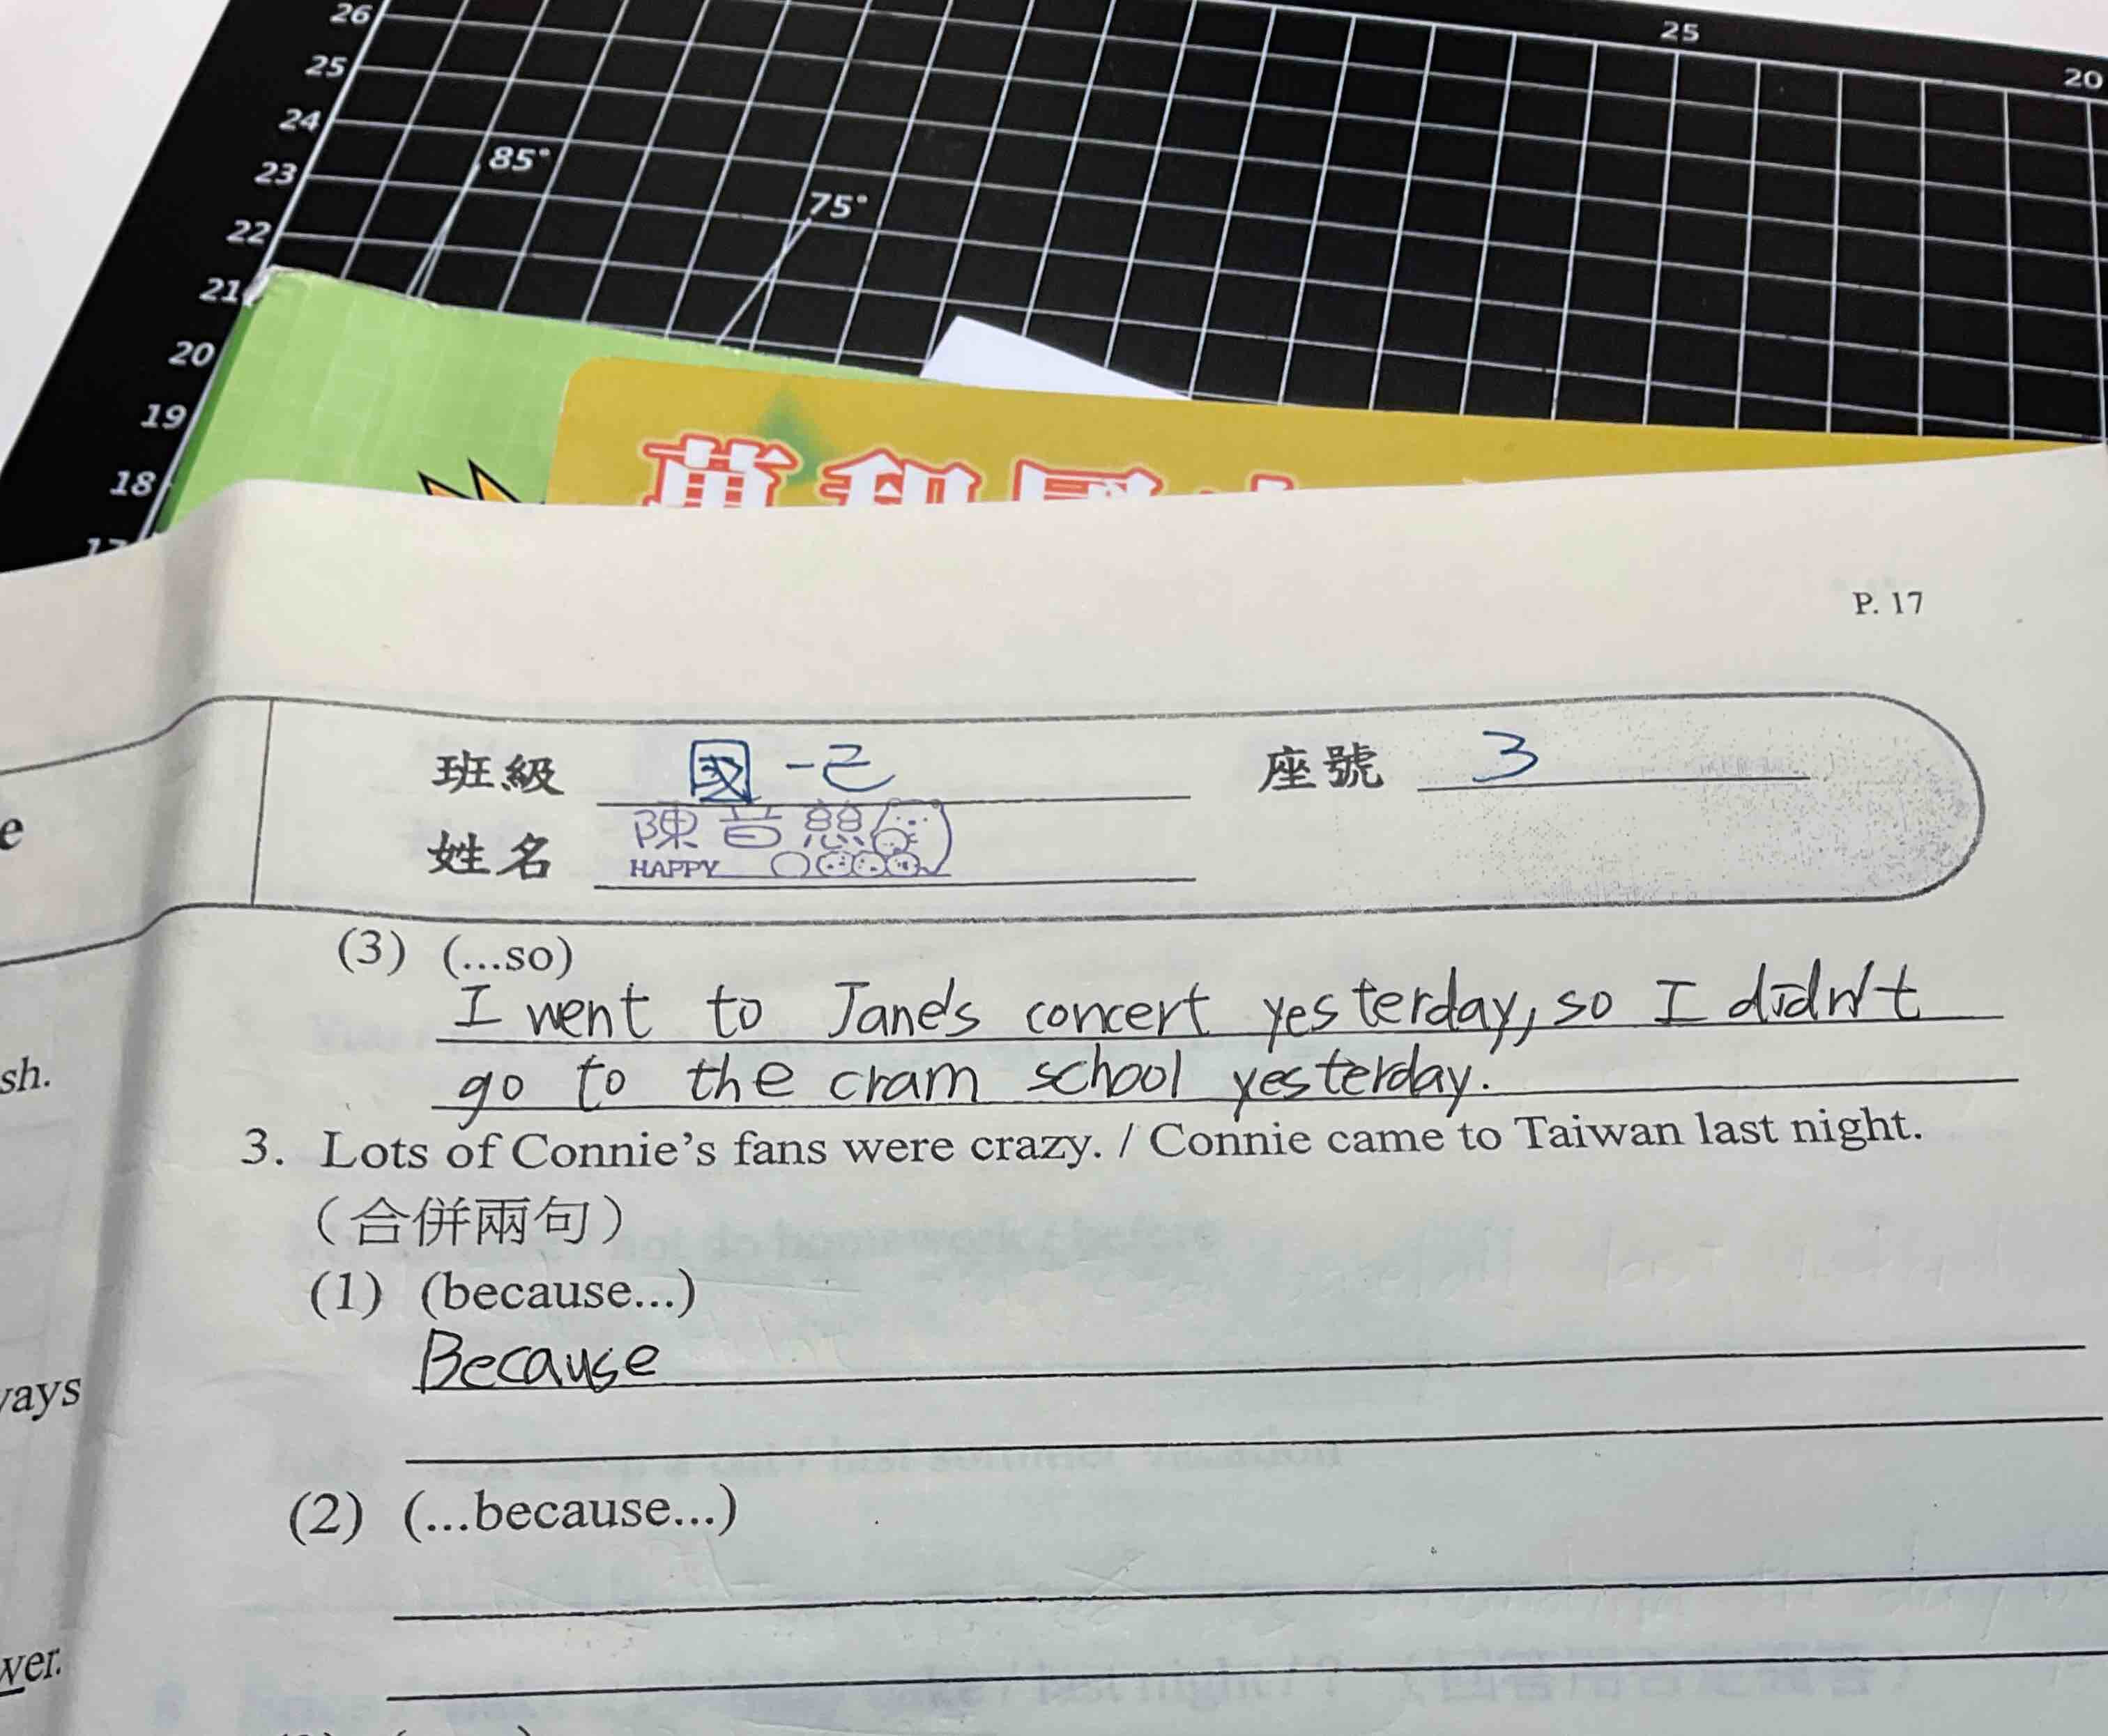 26
25
24
23
22
21
20
19
18
17
85°
75°
25
20
P. 17
班級 國一己 座號 3
姓名 陳音熊
HAPPY
e
(3) (...so)
I went to Jane's concert yesterday, so I didn't
go to the cram school yesterday.
sh.
3. Lots of Connie's fans were crazy. / Connie came to Taiwan last night.
（合併兩句）
(1) (because...)
Because
ways
(2) (...because...)
wer.